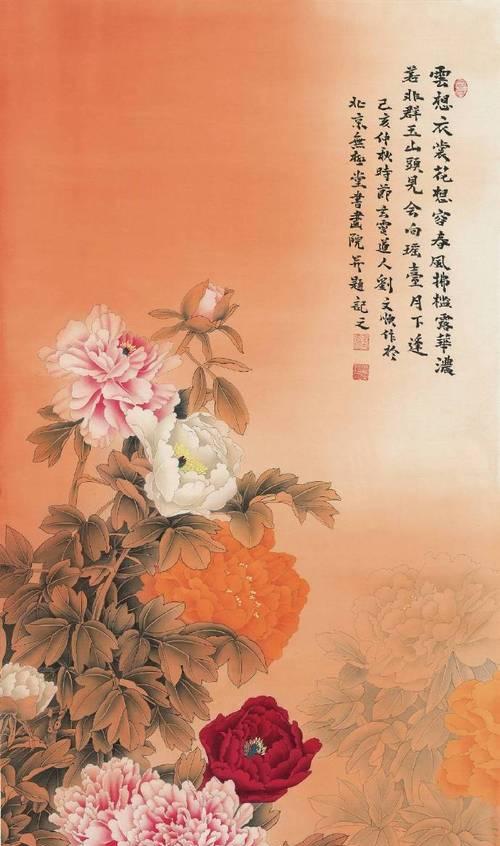 雲想衣裳花想容春風拂檻露華濃
若非群玉山頭見会向瑶臺月下逢
己亥仲秋時節玄道人劉文作於
北京無極堂書畫院并題記之